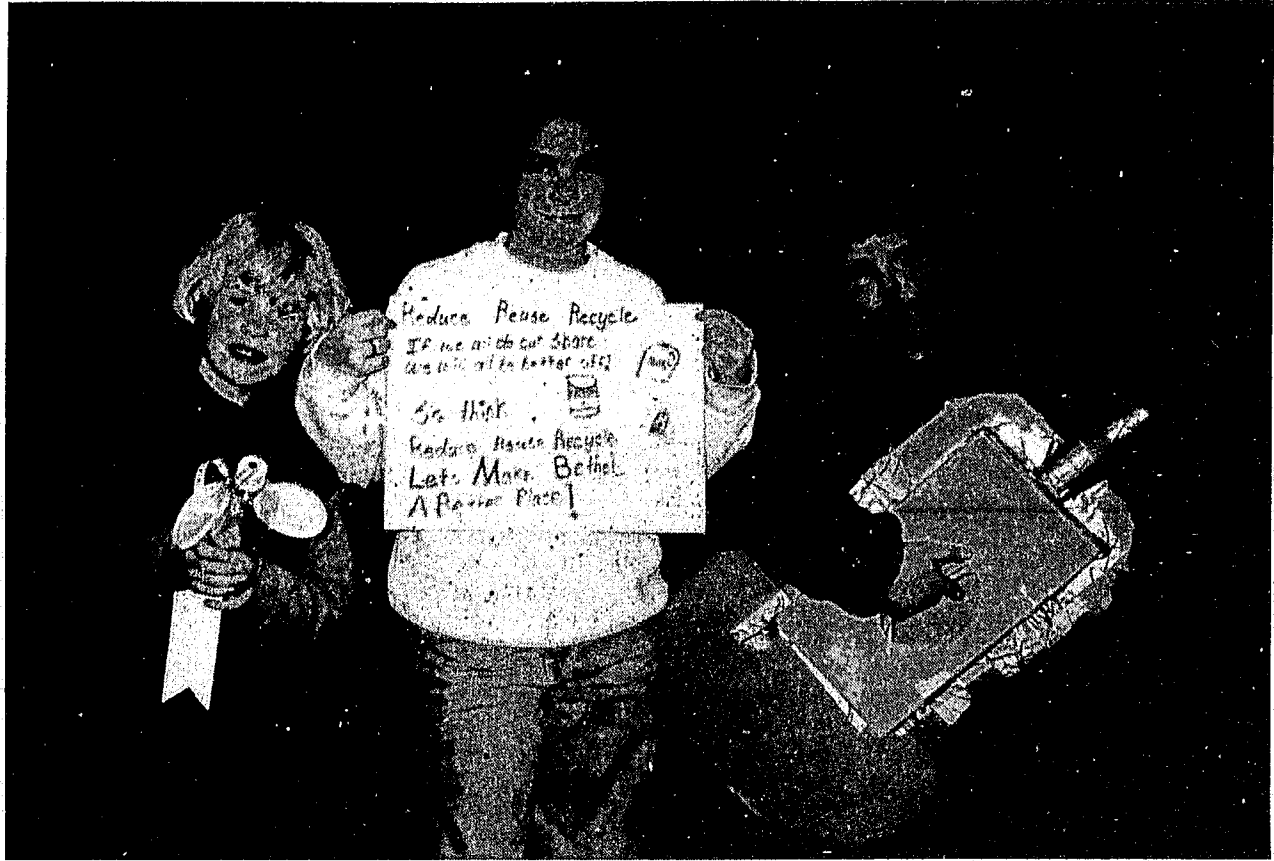 Reduce Reuse Recycle
If we all do our Share
we will all be better off!
So think
Reduce Reuse Recycle
Lets Make Bethel
A Better Place!